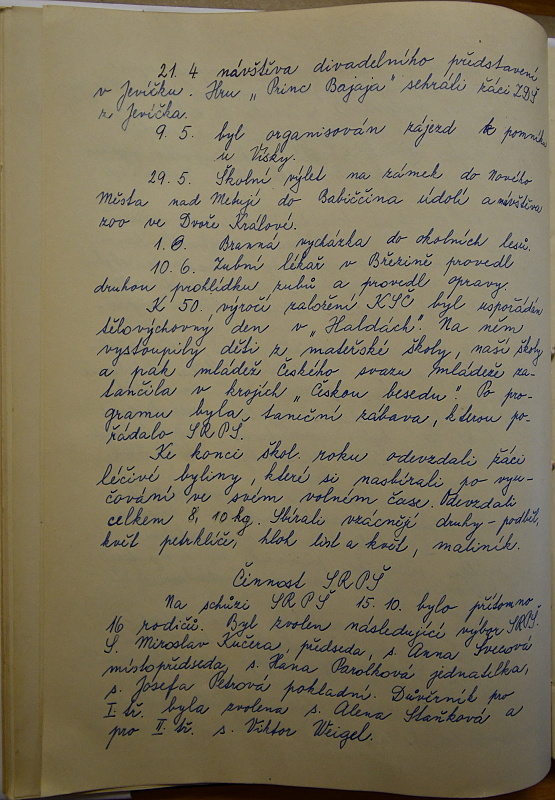 21. 4 návštěva divadelního představení
v Jevíčku. Hru „Princ Bajaja" sehráli žáci ZDŠ
z Jevíčka.
9. 5. byl organisován zájezd k pomníku
u Vísky.
29. 5. Školní výlet na zámek do Nového
Města nad Metují do Babiččina údolí a návštěva
zoo ve Dvoře Králové.
1. 6. Branná vycházka do okolních lesů.
10. 6. Zubní lékař v Březině provedl
druhou prohlídku zubů a provedl opravy.
K 50. výročí založení KSČ byl uspořádán
tělovýchovný den v „Haldách". Na něm
vystoupily děti z mateřské školy, naší školy
a pak mládež Českého svazu mládeže za-
tančila v krojích „Českou besedu". Po pro-
gramu byla taneční zábava, kterou po-
řádalo SRPŠ.
Ke konci škol. roku odevzdali žáci
léčivé byliny, které si nasbírali po vyu-
čování ve svém volném čase. Odevzdali
celkem 8,10 kg. Sbírali vzácnější druhy – podběl,
květ petrklíče, hloh list a květ, maliník.
Činnost SRPŠ
Na schůzi SRPŠ 15. 10. bylo přítomno
16 rodičů. Byl zvolen následující výbor SRPŠ.
S. Miroslav Kučera, předseda, s. Anna Švecová
místopředseda, s. Hana Parolková jednatelka,
s. Josefa Petrová pokladní. Důvěrník pro
I. tř. byla zvolena s. Alena Staňková a
pro II. tř. s. Viktor Weigel.